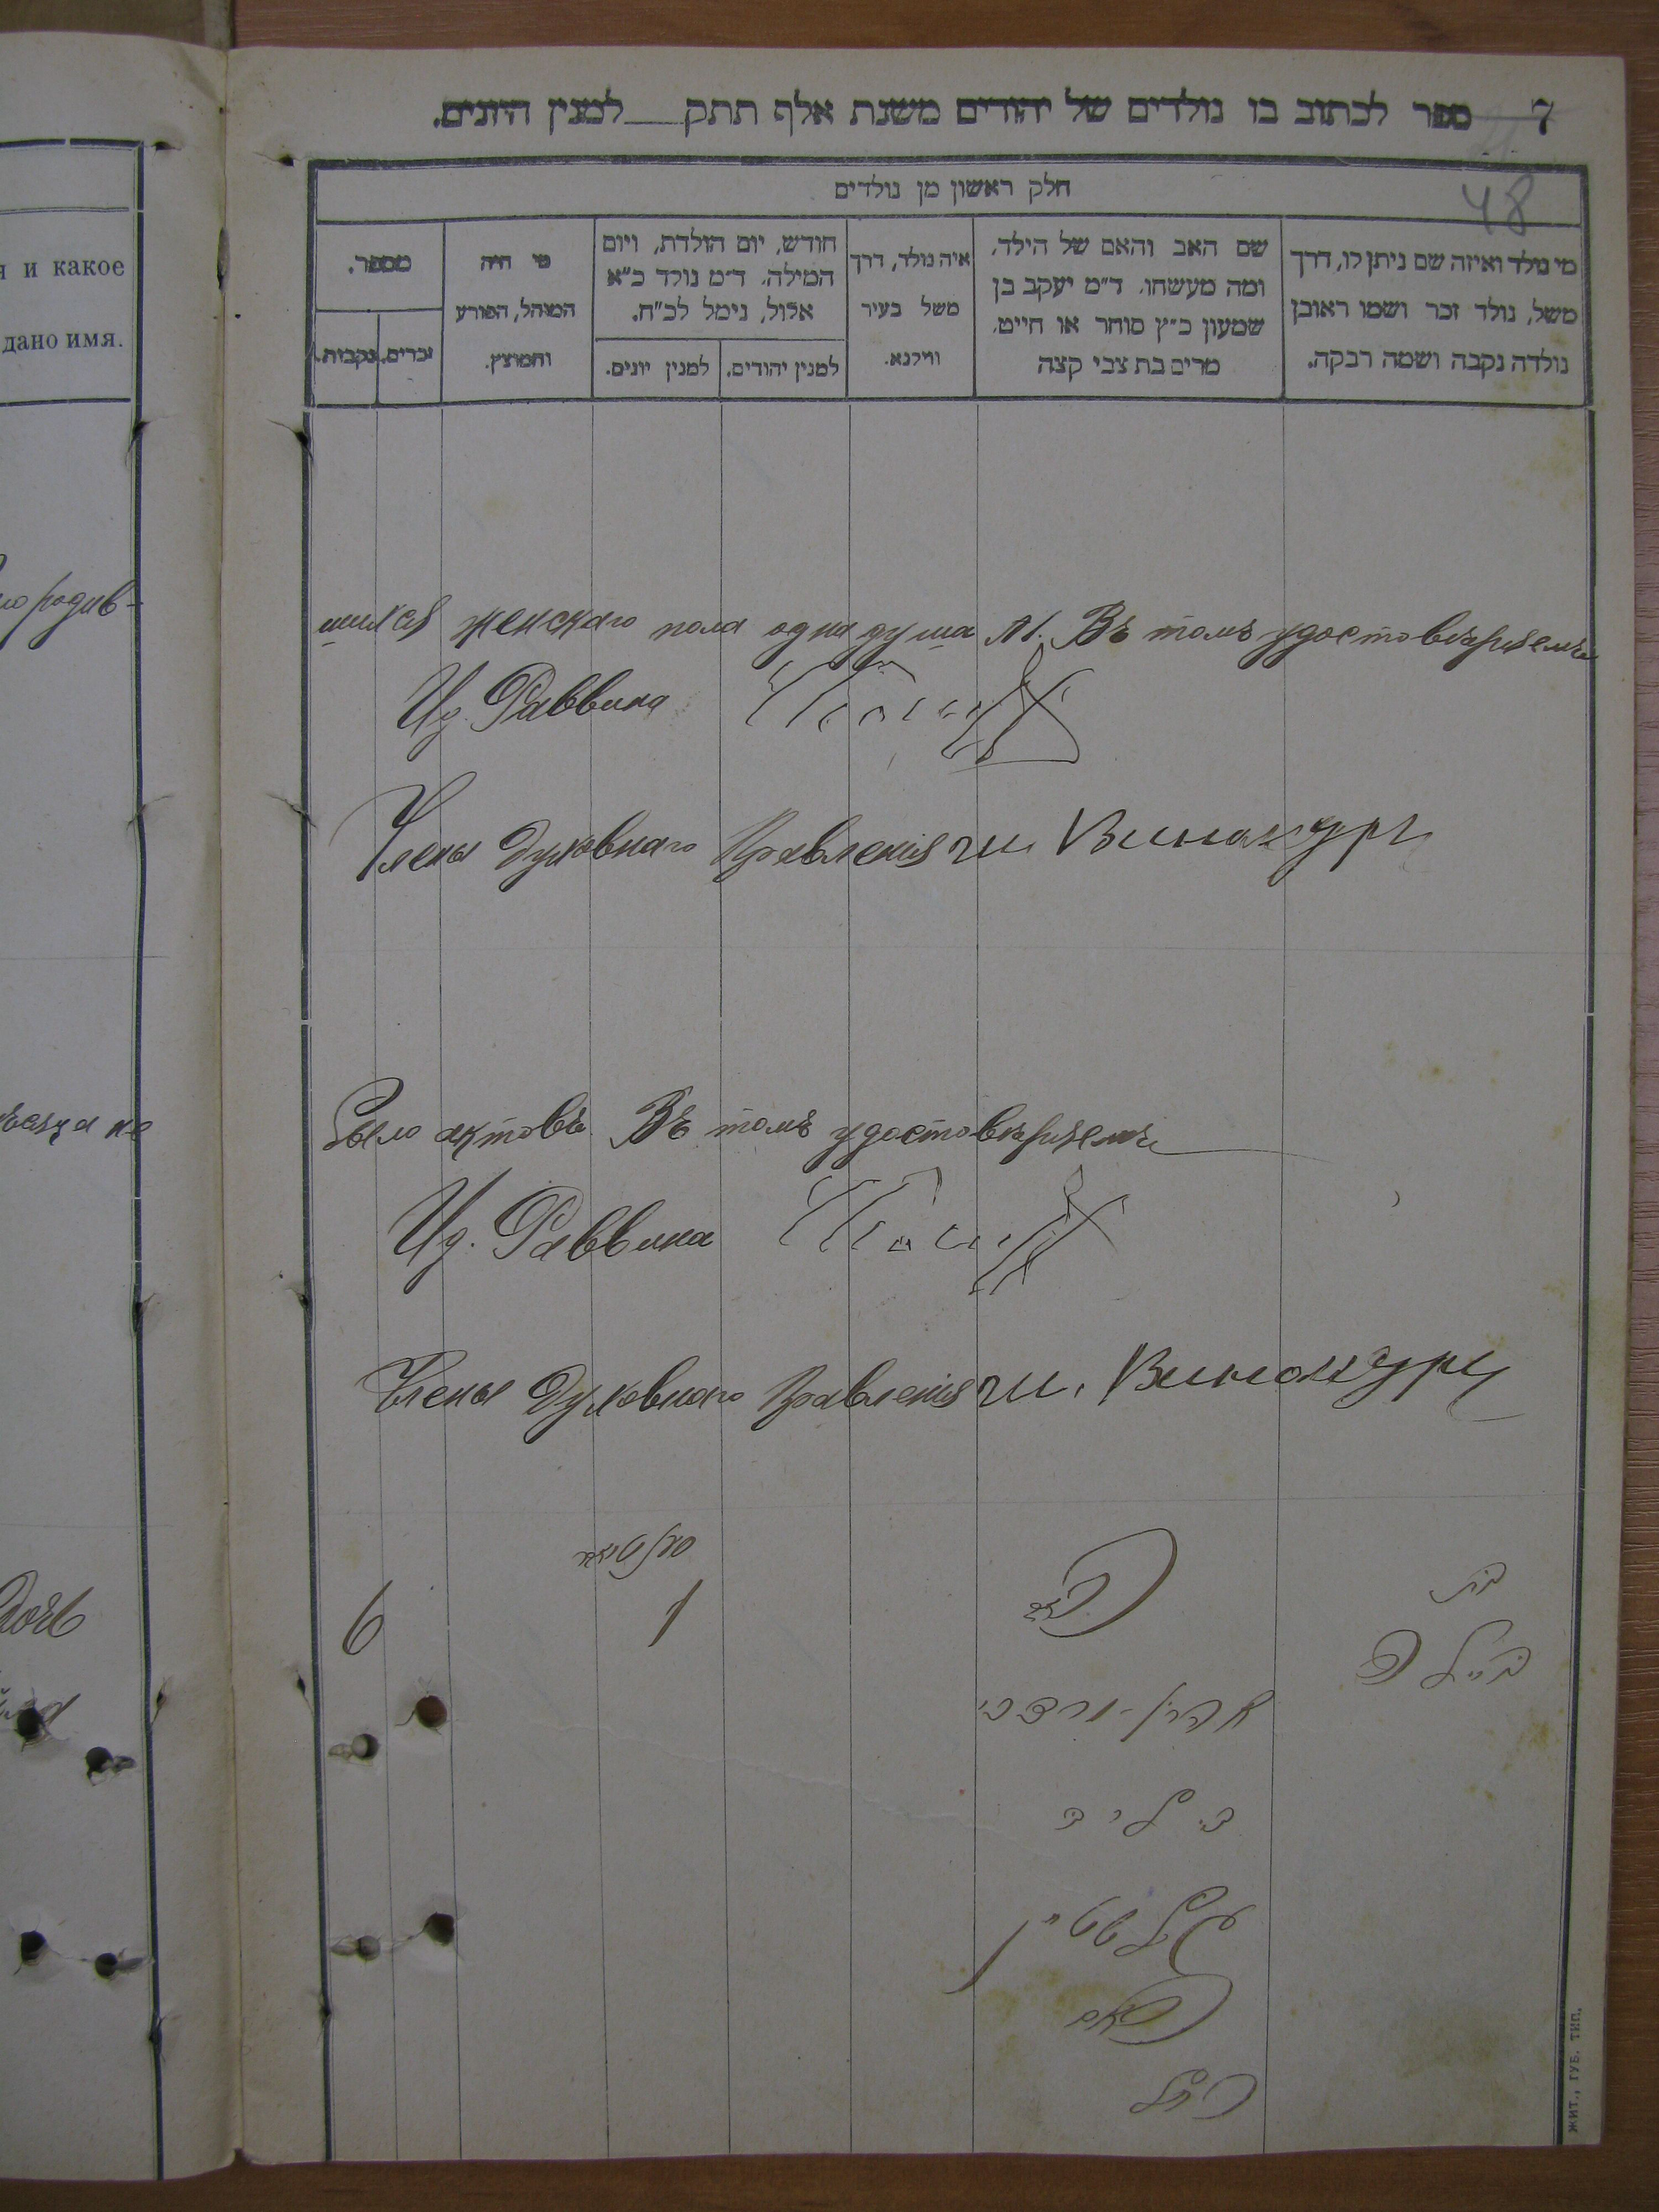 7 ספר לכתוב בו נולדים של יהודים משנת אלף תתק___למנין היונים.
48
חלק ראשון מן נולדים
מי נולד ואיזה שם ניתן לו, דרך
משל, נולד זכר ושמו ראובן
נולדה נקבה ושמה רבקה.
שם האב והאם של הילד,
ומה מעשהו. ד״מ יעקב בן
שמעון כ״ץ סוחר או חייט,
מרים בת צבי קצה
איה נולד, דרך
משל בעיר
ווילנא.
חודש, יום הולדת, ויום
המילה. ד״מ נולד כ״א
אלול, נימל לכ״ח.
למנין יהודים.
למנין יונים.
מי היה
המוהל, הפורע
והמוצץ.
מספר.
זכרים.
נקבות.
я и какое
дано имя.
родив-
шихся женскаго пола одна душа №1. Въ томъ удостовѣряемъ
Ид. Раввина
Члены Духовнаго Правленія Ш. Винокуръ
не
было актовъ. Въ томъ удостовѣряемъ
Ид. Раввина
Члены Духовнаго Правленія Ш. Винокуръ
Дочь
6
1
בת
ביילה
אהרן-
האם
רחל
ЖИТ., ГУБ. ТИП.